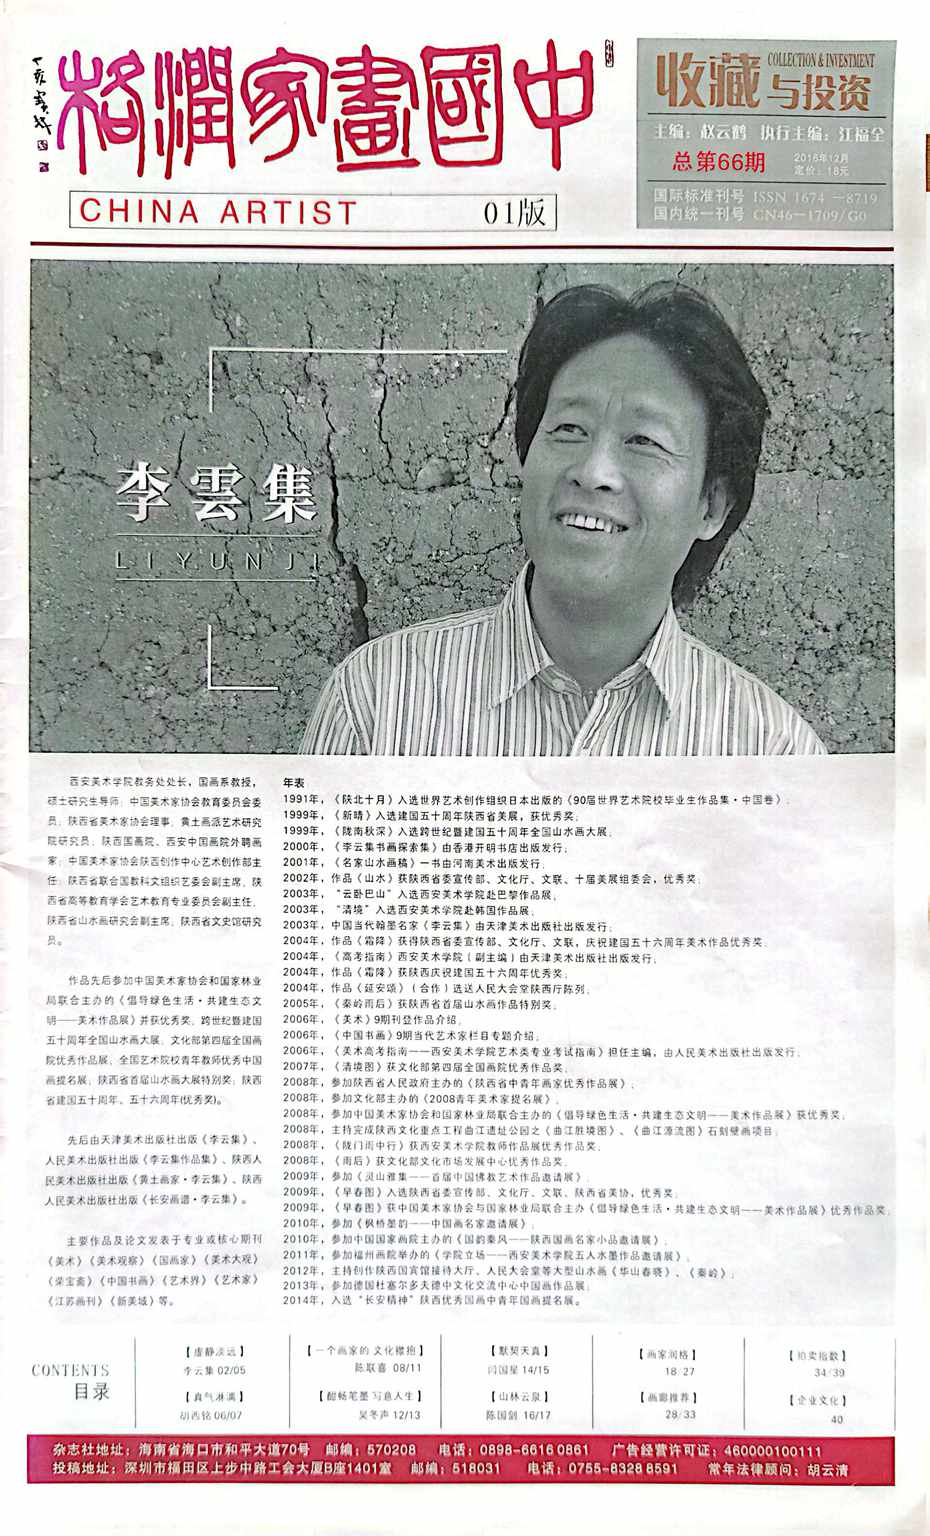 中國畫家潤格
CHINA ARTIST
01版
收藏
COLLECTION & INVESTMENT
与投资
主编：赵云鹤 执行主编：江福全
总第66期
2016年12月
定价：18元
国际标准刊号 ISSN 1674－8719
国内统一刊号 CN46－1709/G0
李雲集
LI YUN JI
西安美术学院教务处处长，国画系教授，
硕士研究生导师；中国美术家协会教育委员会委
员；陕西省美术家协会理事；黄土画派艺术研究
院研究员；陕西国画院、西安中国画院外聘画
家；中国美术家协会陕西创作中心艺术创作部主
任；陕西省联合国教科文组织艺委会副主席；陕
西省高等教育学会艺术教育专业委员会副主任；
陕西省山水画研究会副主席；陕西省文史馆研究
员。
作品先后参加中国美术家协会和国家林业
局联合主办的《倡导绿色生活·共建生态文
明——美术作品展》并获优秀奖；跨世纪暨建国
五十周年全国山水画大展；文化部第四届全国画
院优秀作品展；全国艺术院校青年教师优秀中国
画提名展；陕西省首届山水画大展特别奖；陕西
省建国五十周年、五十六周年(优秀奖)。
先后由天津美术出版社出版《李云集》、
人民美术出版社出版《李云集作品集》、陕西人
民美术出版社出版《黄土画家·李云集》、陕西
人民美术出版社出版《长安画谱·李云集》。
主要作品及论文发表于专业或核心期刊
《美术》《美术观察》《国画家》《美术大观》
《荣宝斋》《中国书画》《艺术界》《艺术家》
《江苏画刊》《新美域》等。
年表
1991年，《陕北十月》入选世界艺术创作组织日本出版的《90届世界艺术院校毕业生作品集·中国卷》；
1999年，《新晴》入选建国五十周年陕西省美展，获优秀奖；
1999年，《陇南秋深》入选跨世纪暨建国五十周年全国山水画大展；
2000年，《李云集书画探索集》由香港开明书店出版发行；
2001年，《名家山水画稿》一书由河南美术出版发行；
2002年，作品《山水》获陕西省委宣传部、文化厅、文联、十届美展组委会，优秀奖；
2003年，“云卧巴山”入选西安美术学院赴巴黎作品展；
2003年，“清境”入选西安美术学院赴韩国作品展；
2003年，中国当代翰墨名家《李云集》由天津美术出版社出版发行；
2004年，作品《霜降》获得陕西省委宣传部、文化厅、文联，庆祝建国五十六周年美术作品优秀奖；
2004年，《高考指南》西安美术学院（副主编）由天津美术出版社出版发行；
2004年，作品《霜降》获陕西庆祝建国五十六周年优秀奖；
2004年，作品《延安颂》（合作）选送人民大会堂陕西厅陈列；
2005年，《秦岭雨后》获陕西省首届山水画作品特别奖；
2006年，《美术》9期刊登作品介绍；
2006年，《中国书画》9期当代艺术家栏目专题介绍；
2006年，《美术高考指南——西安美术学院艺术类专业考试指南》担任主编，由人民美术出版社出版发行；
2007年，《清境图》获文化部第四届全国画院优秀作品奖；
2008年，参加陕西省人民政府主办的《陕西省中青年画家优秀作品展》；
2008年，参加文化部主办的《2008青年美术家提名展》；
2008年，参加中国美术家协会和国家林业局联合主办的《倡导绿色生活·共建生态文明——美术作品展》获优秀奖；
2008年，主持完成陕西文化重点工程曲江遗址公园之《曲江胜境图》、《曲江源流图》石刻壁画项目；
2008年，《陇门雨中行》获西安美术学院教师作品展优秀作品奖；
2008年，《雨后》获文化部文化市场发展中心优秀作品奖；
2009年，参加《灵山雅集——首届中国佛教艺术作品邀请展》；
2009年，《早春图》入选陕西省委宣传部、文化厅、文联、陕西省美协，优秀奖；
2009年，《早春图》获中国美术家协会与国家林业局联合主办《倡导绿色生活·共建生态文明——美术作品展》优秀作品奖；
2010年，参加《枫桥墨韵——中国画名家邀请展》；
2010年，参加中国国家画院主办的《国韵秦风——陕西国画名家小品邀请展》；
2011年，参加福州画院举办的《学院立场——西安美术学院五人水墨作品邀请展》；
2012年，主持创作陕西国宾馆接待大厅、人民大会堂等大型山水画《华山春晓》、《秦岭》；
2013年，参加德国杜塞尔多夫德中文化交流中心中国画作品展；
2014年，入选“长安精神”陕西优秀国画中青年国画提名展。
CONTENTS
目录
【虚静淡远】
李云集 02/05
【真气淋漓】
胡西铭 06/07
【一个画家的 文化襟抱】
陈联喜 08/11
【酣畅笔墨 写意人生】
吴冬声 12/13
【默契天真】
闫国星 14/15
【山林云泉】
陈国剑 16/17
【画家润格】
18/27
【画廊推荐】
28/33
【拍卖指数】
34/39
【企业文化】
40
杂志社地址：海南省海口市和平大道70号 邮编：570208 电话：0898-6616 0861 广告经营许可证：460000100111
投稿地址：深圳市福田区上步中路工会大厦B座1401室 邮编：518031 电话：0755-8328 8591 常年法律顾问：胡云清